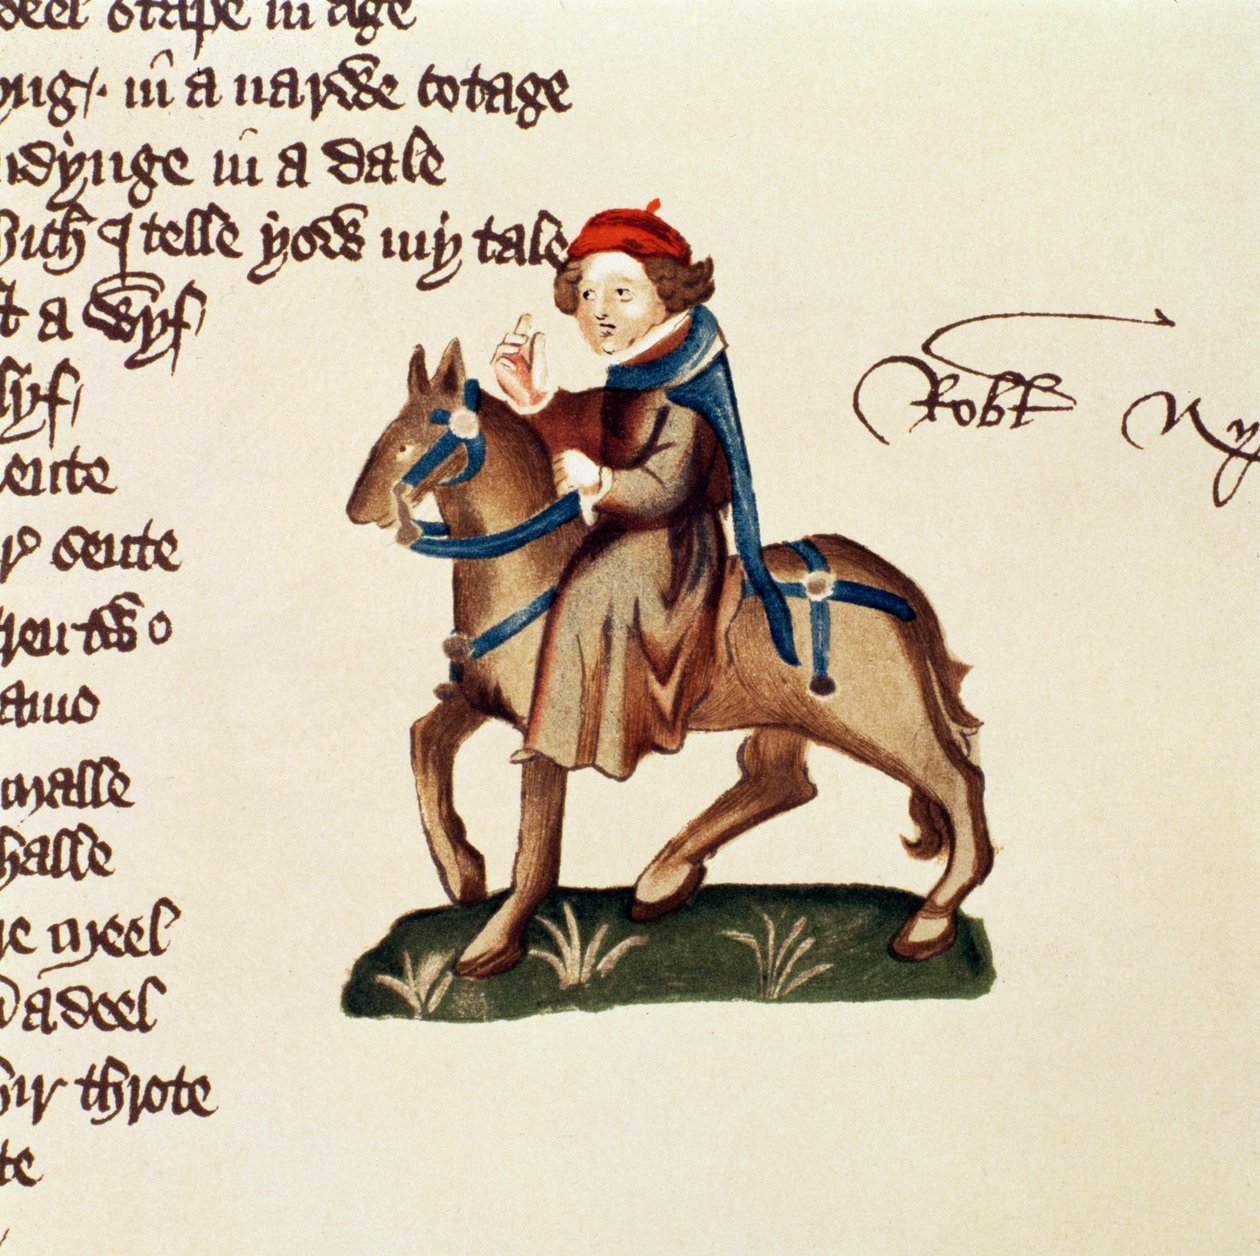 deel stape in age
yng · in a narwe cotage
ndynge in a dale
which I telle yow my tale
st a wyf
lyf
rente
r sente
ren two
amo
malle
halle
ne meel
a deel
hir throte
te
Robt Ny